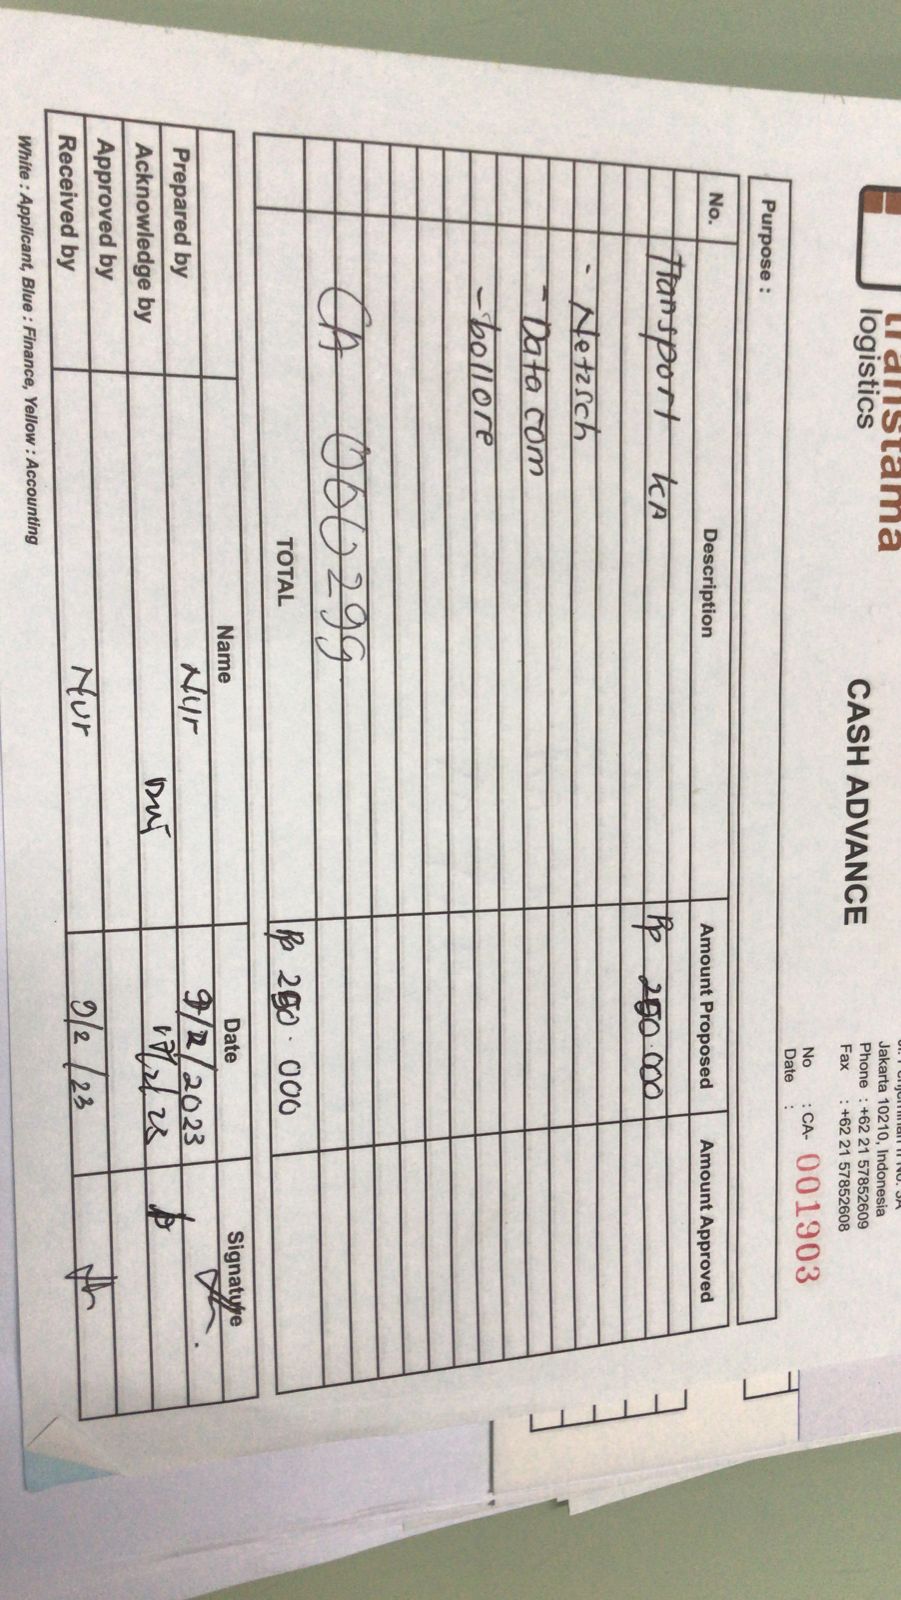 transtama
logistics
CASH ADVANCE
Jakarta 10210, Indonesia
Phone : +62 21 57852609
Fax : +62 21 57852608
No : CA- 001903
Date :
Purpose :
No. Description Amount Proposed Amount Approved
Transport KA Rp 250.000
- Netzsch
- Datacom
- bollore
CA 000299
TOTAL Rp 250.000
Name Date Signature
Prepared by Nur 9/2/2023
Acknowledge by
Approved by
Received by Nur 9/2/23
White : Applicant, Blue : Finance, Yellow : Accounting